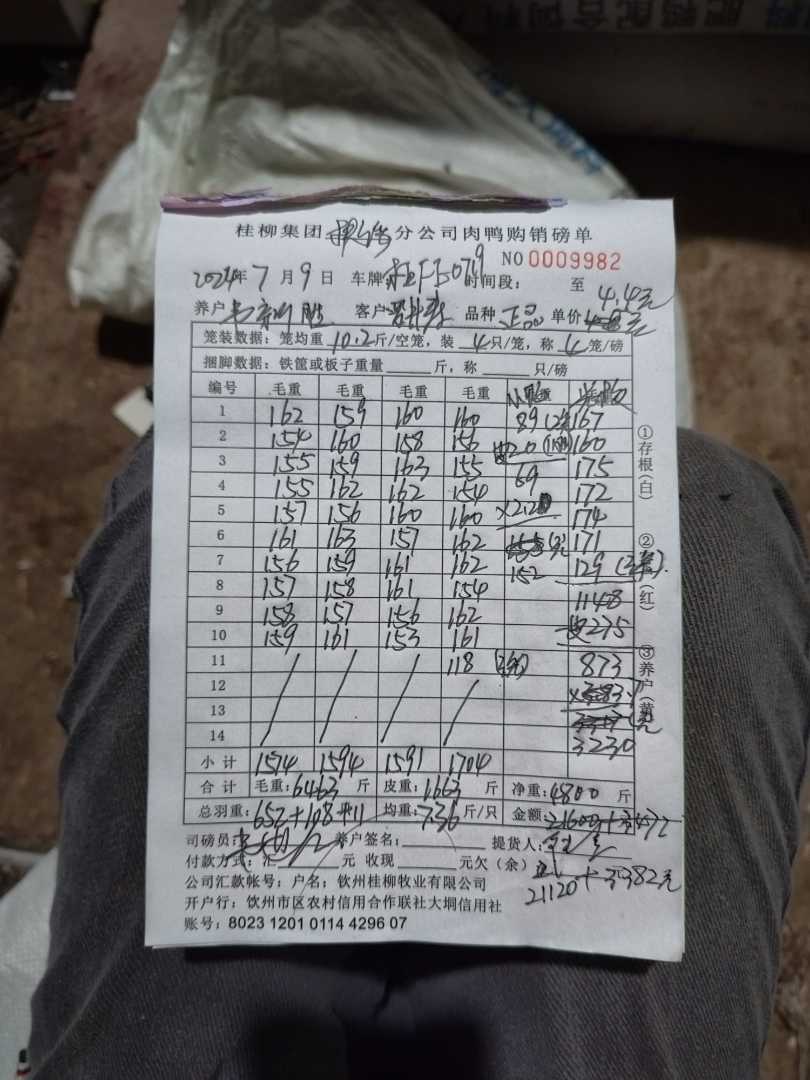 肥鸭配合饲料
桂柳集团 分公司肉鸭购销磅单
NO 0009982
2024年 7 月 9 日 车牌: 时间段: 至
4.4元
养户 客户 品种 正品 单价 元
笼装数据: 笼均重 10.2 斤/空笼, 装 4 只/笼, 称 4 笼/磅
捆脚数据: 铁筐或板子重量 斤, 称 只/磅
编号 毛重 毛重 毛重 毛重 毛重
1 162 159 160 160 89 167
2 154 160 158 156 20 160
3 155 159 163 155 69 175
4 155 162 162 154 172
5 157 156 160 160 174
6 161 163 157 162 171
7 156 159 161 162 152 129
8 157 158 161 154 1148
9 158 157 156 162 275
10 159 161 153 161
11 118 873
12
13
14 3230
小计 1574 1594 1591 1704
合计 毛重: 6463 斤 皮重: 1663 斤 净重: 4800 斤
总羽重: 652+108+11 均重: 7.36 斤/只 金额: 21600+3472
司磅员: 养户签名: 提货人:
付款方式: 汇 元 收现 元欠(余)
21120+3382元
公司汇款帐号: 户名: 钦州桂柳牧业有限公司
开户行: 钦州市区农村信用合作联社大垌信用社
账号: 8023 1201 0114 4296 07
①存根(白)
②(红)
③养户(黄)